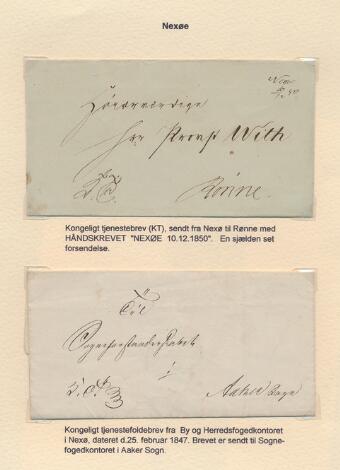 Nexøe
Höiærværdige
Herr Provst With
Rønne.
Kongeligt tjenestebrev (KT), sendt fra Nexø til Rønne med
HÅNDSKREVET "NEXØE 10.12.1850". En sjælden set
forsendelse.
Til
Sogneforstanderskabet
i
Aaker Sogn
Kongeligt tjenestefoldebrev fra By og Herredsfogedkontoret
i Nexø, dateret d.25. februar 1847. Brevet er sendt til Sogne-
fogedkontoret i Aaker Sogn.